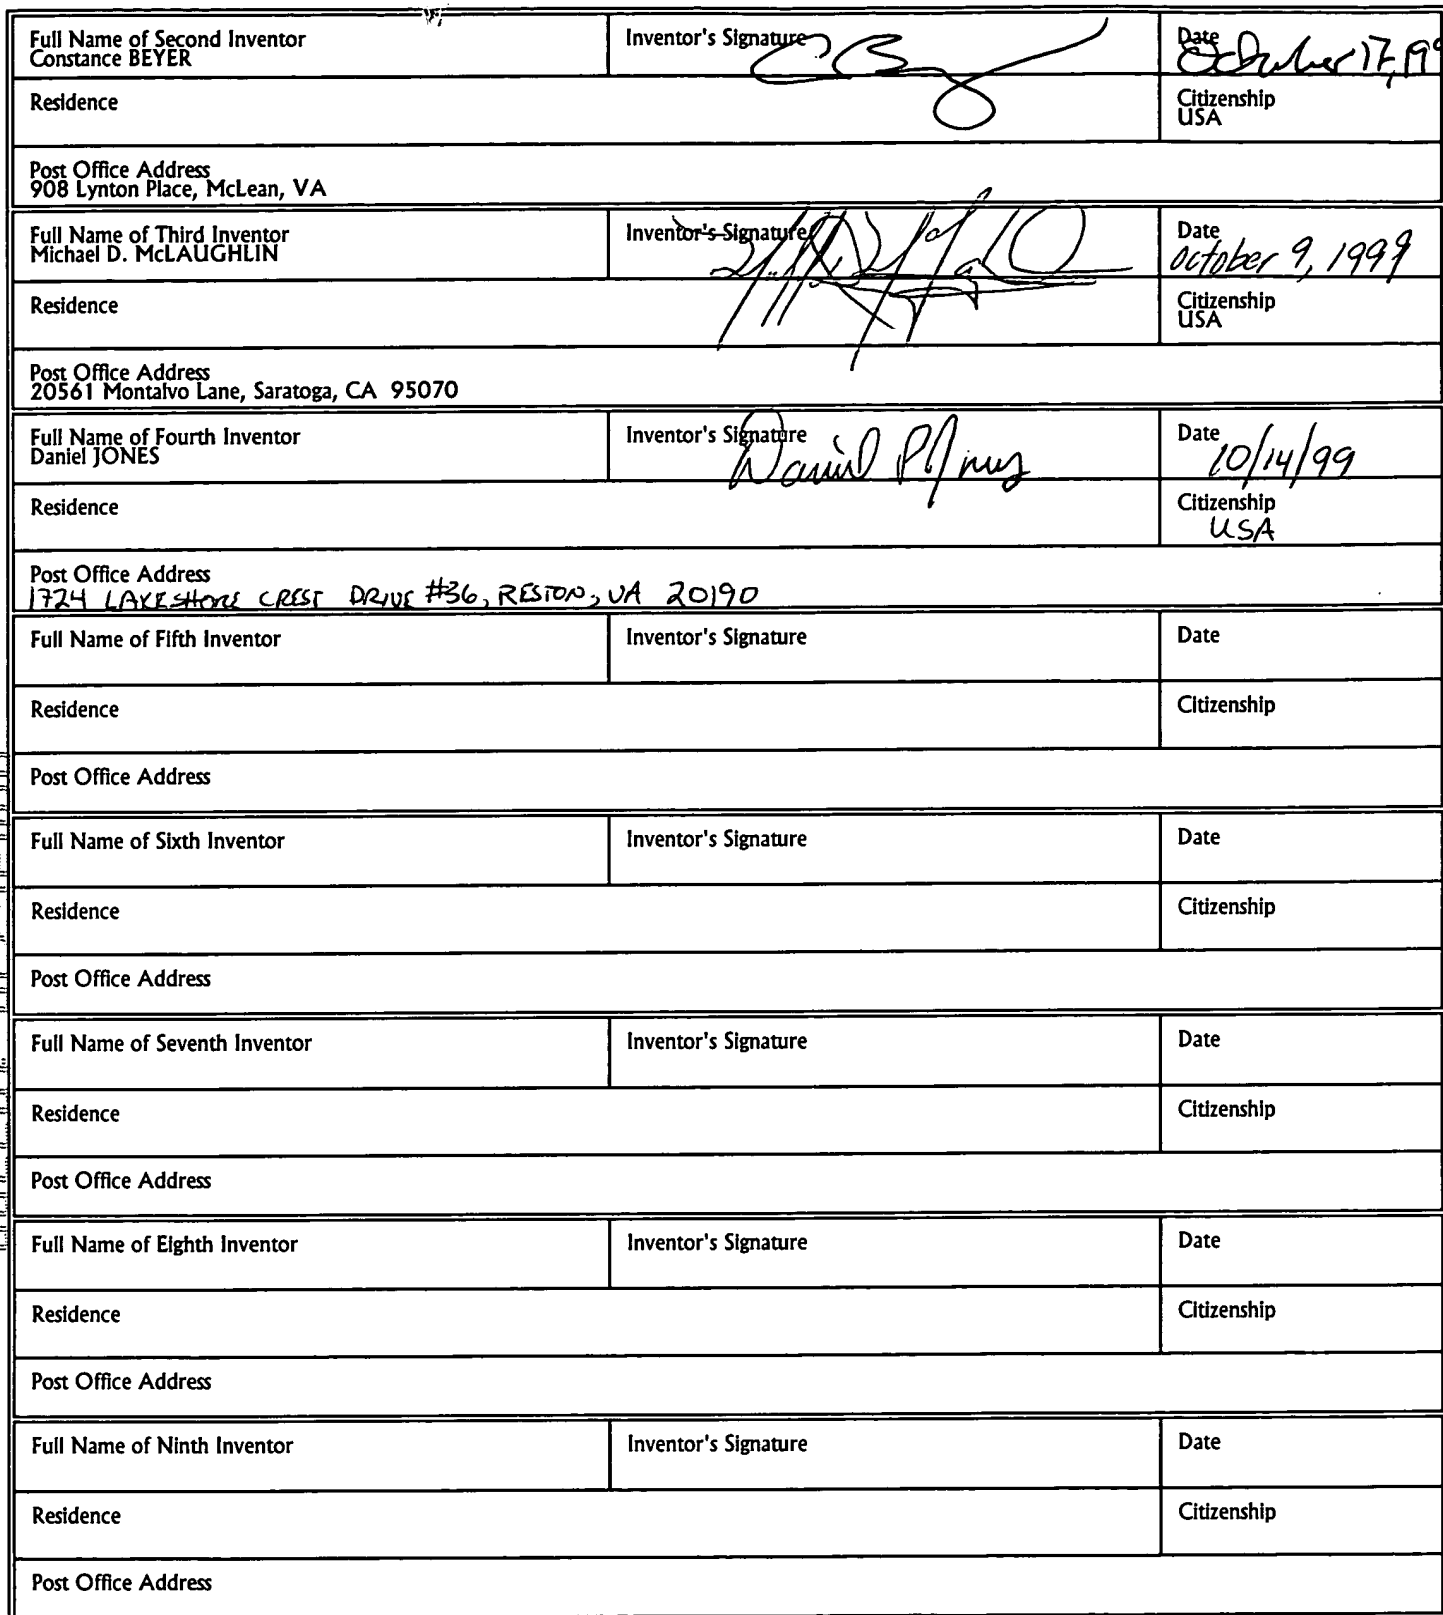 Full Name of Second Inventor Inventor's Signature Date
Constance BEYER October 17, 19
Residence Citizenship
USA
Post Office Address
908 Lynton Place, McLean, VA
Full Name of Third Inventor Inventor's Signature Date
Michael D. McLAUGHLIN October 9, 1999
Residence Citizenship
USA
Post Office Address
20561 Montalvo Lane, Saratoga, CA 95070
Full Name of Fourth Inventor Inventor's Signature Date
Daniel JONES Daniel P Jones 10/14/99
Residence Citizenship
USA
Post Office Address
1724 LAKESHORE CREST DRIVE #36, RESTON, VA 20190
Full Name of Fifth Inventor Inventor's Signature Date
Residence Citizenship
Post Office Address
Full Name of Sixth Inventor Inventor's Signature Date
Residence Citizenship
Post Office Address
Full Name of Seventh Inventor Inventor's Signature Date
Residence Citizenship
Post Office Address
Full Name of Eighth Inventor Inventor's Signature Date
Residence Citizenship
Post Office Address
Full Name of Ninth Inventor Inventor's Signature Date
Residence Citizenship
Post Office Address